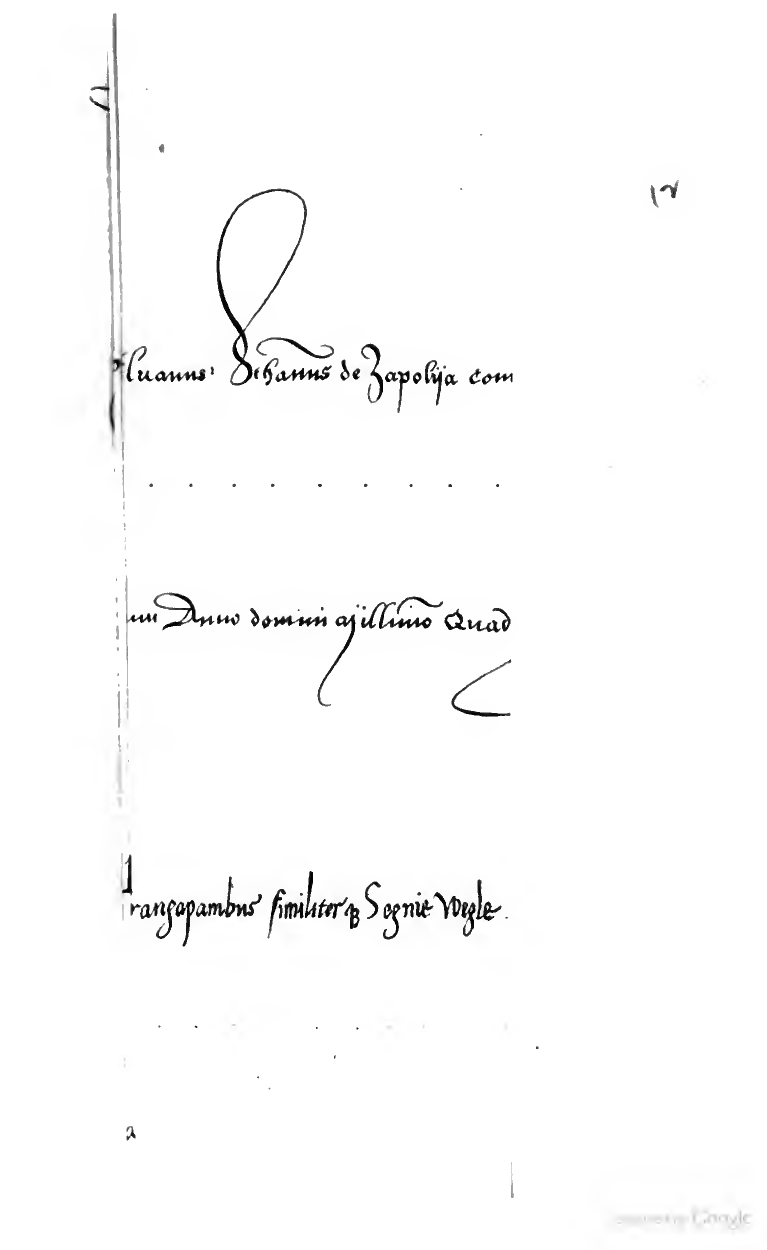 12
luanus: Johannes de Zapolija com
. . . . . . . . .
Anno domini Millimo Quad
rangapanibus similiter Segnie Wegle.
2
Google